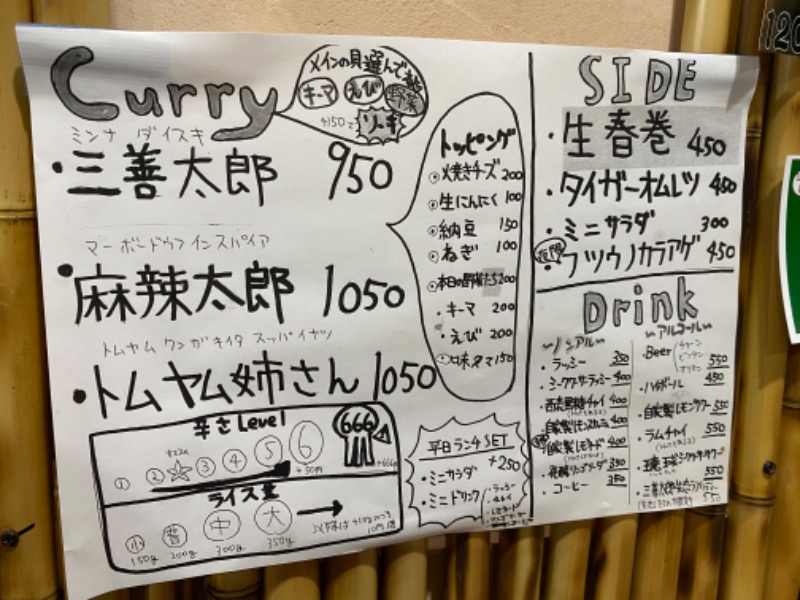 Curry
メインの具選んで
キーマ
えび
野菜
+150で
ソーキ
ミンナ ダイスキ
・三善太郎 950
マーボードウフインスパイア
・麻辣太郎 1050
トムヤムクンガキイタ スッパイヤツ
・トムヤム姉さん 1050
辛さLevel
① ② ③ ④ ⑤ ⑥
+50円
666
+666円
ライス量
小 普 中 大
150g 200g 300g 350g
トッピング
焼きチーズ 200
生にんにく 100
納豆 150
ねぎ 100
本日の野菜たち 200
・キーマ 200
・えび 200
味タマ 150
平日ランチSET
+250
・ミニサラダ
・ミニドリンク
・ラッシー
・チャイ
SIDE
・生春巻 450
・タイガーオムレツ 450
・ミニサラダ 300
夜限
・フツウノカラアゲ 450
Drink
〜ノンアル〜
・ラッシー 350
・シークワーサーラッシー 400
・西表黒糖チャイ 400
・自家製レモネード 400
・コーヒー 350
〜アルコール〜
・Beer 550
・ハイボール 450
・自家製レモンサワー 550
・ラムチャイ 550
・琉球シークワーサワー 550
550
120